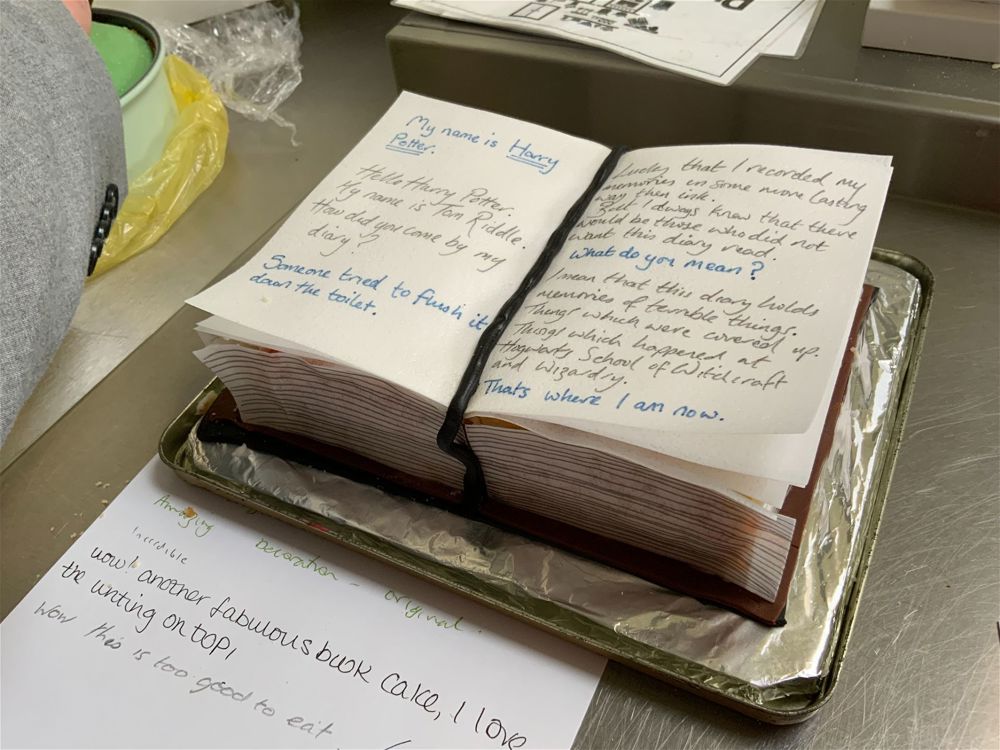 My name is Harry
Potter.
Hello Harry Potter.
My name is Tom Riddle.
How did you come by my
diary?
Someone tried to flush it
down the toilet.
Lucky that I recorded my
memories in some more lasting
way then ink.
But I always knew that there
would be those who did not
want this diary read.
What do you mean?
I mean that this diary holds
memories of terrible things.
Things which were covered up.
Things which happened at
Hogwarts School of Witchcraft
and Wizardry.
Thats where I am now.
Amazing Decoration - original.
Incredible
wow! another fabulous book cake, I love
the writing on top!
Wow this is too good to eat.